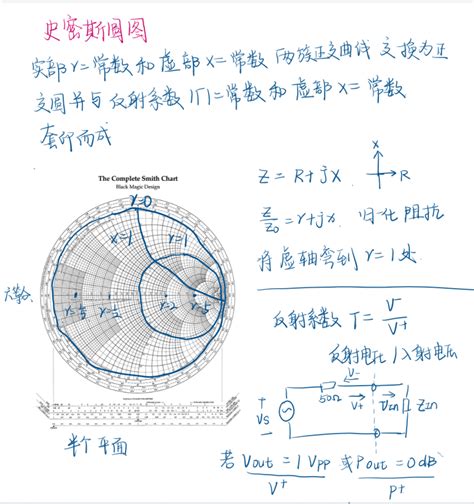 史密斯圆图
实部r=常数和虚部x=常数两族正交曲线变换为正
交圆并与反射系数|Γ|=常数和虚部x=常数
套印而成
The Complete Smith Chart
Black Magic Design
r=0
x=1
r=1
r=2
r=5
半个平面
X
R
Z = R+jX
Z/Z0 = r+jx 归化阻抗
将虚轴弯到r=1处
反射系数 Γ = V-/V+
反射电压/入射电压
V-
50Ω
V+
Vin
Zin
+
Vs
-
若 Vout = 1Vpp 或 Pout = 0dB
V+
P+